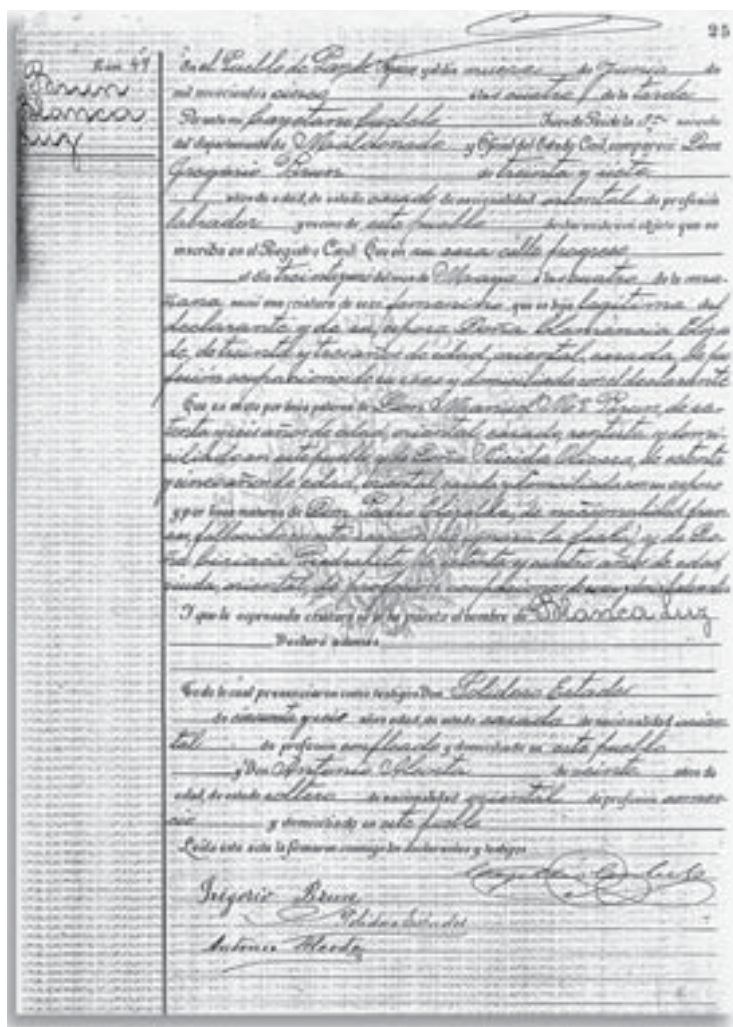 25
Núm. 47
Brum
Blanca
Luz
En el Pueblo de Pan de Azúcar y el día nueve de Junio de
mil novecientos cinco a las cuatro de la tarde
Por ante mí, Cayetano Juez de Paz de la 3ª sección
del departamento de Maldonado y Oficial del Estado Civil, compareció Don
Gregorio Brum de treinta y siete
años de edad, de estado casado de nacionalidad oriental de profesión
labrador y vecino de este pueblo declarando con objeto que se
inscriba en el Registro Civil: Que en su casa calle Progreso
el día treintiuno del mes de Mayo a las cuatro de la ma-
ñana nació una criatura de sexo femenino que es hija legítima del
declarante y de su esposa Doña Eliza
de, de treinta y tres años de edad, oriental, casada, de pro
fesión ocupaciones de su casa y domiciliada con el declarante
Que es nieta por línea paterna de Don Manuel Brum, de se-
tenta y seis años de edad, oriental, casado, rentista y domi-
ciliado en este pueblo y de Doña Olivera, de setenta
y cinco años de edad, oriental, casada y domiciliada con su esposo
y por línea materna de Don Pedro Elizalde, de nacionalidad fran
cesa, fallecido y de Do-
ña de setenta y cuatro años de edad
viuda, oriental, de profesión
Y que la expresada criatura se le ha puesto el nombre de Blanca Luz
Declaró además
Todo lo cual presenciaron como testigos Don Polidoro Estades
de cincuenta y seis años edad, de estado casado de nacionalidad orien
tal de profesión empleado y domiciliado en este pueblo
y Don Antonio de veinte años de
edad, de estado soltero de nacionalidad oriental de profesión comer
cio y domiciliado en este pueblo
Leída esta acta la firmaron conmigo los declarantes y testigos
Gregorio Brum
Polidoro Estades
Antonio